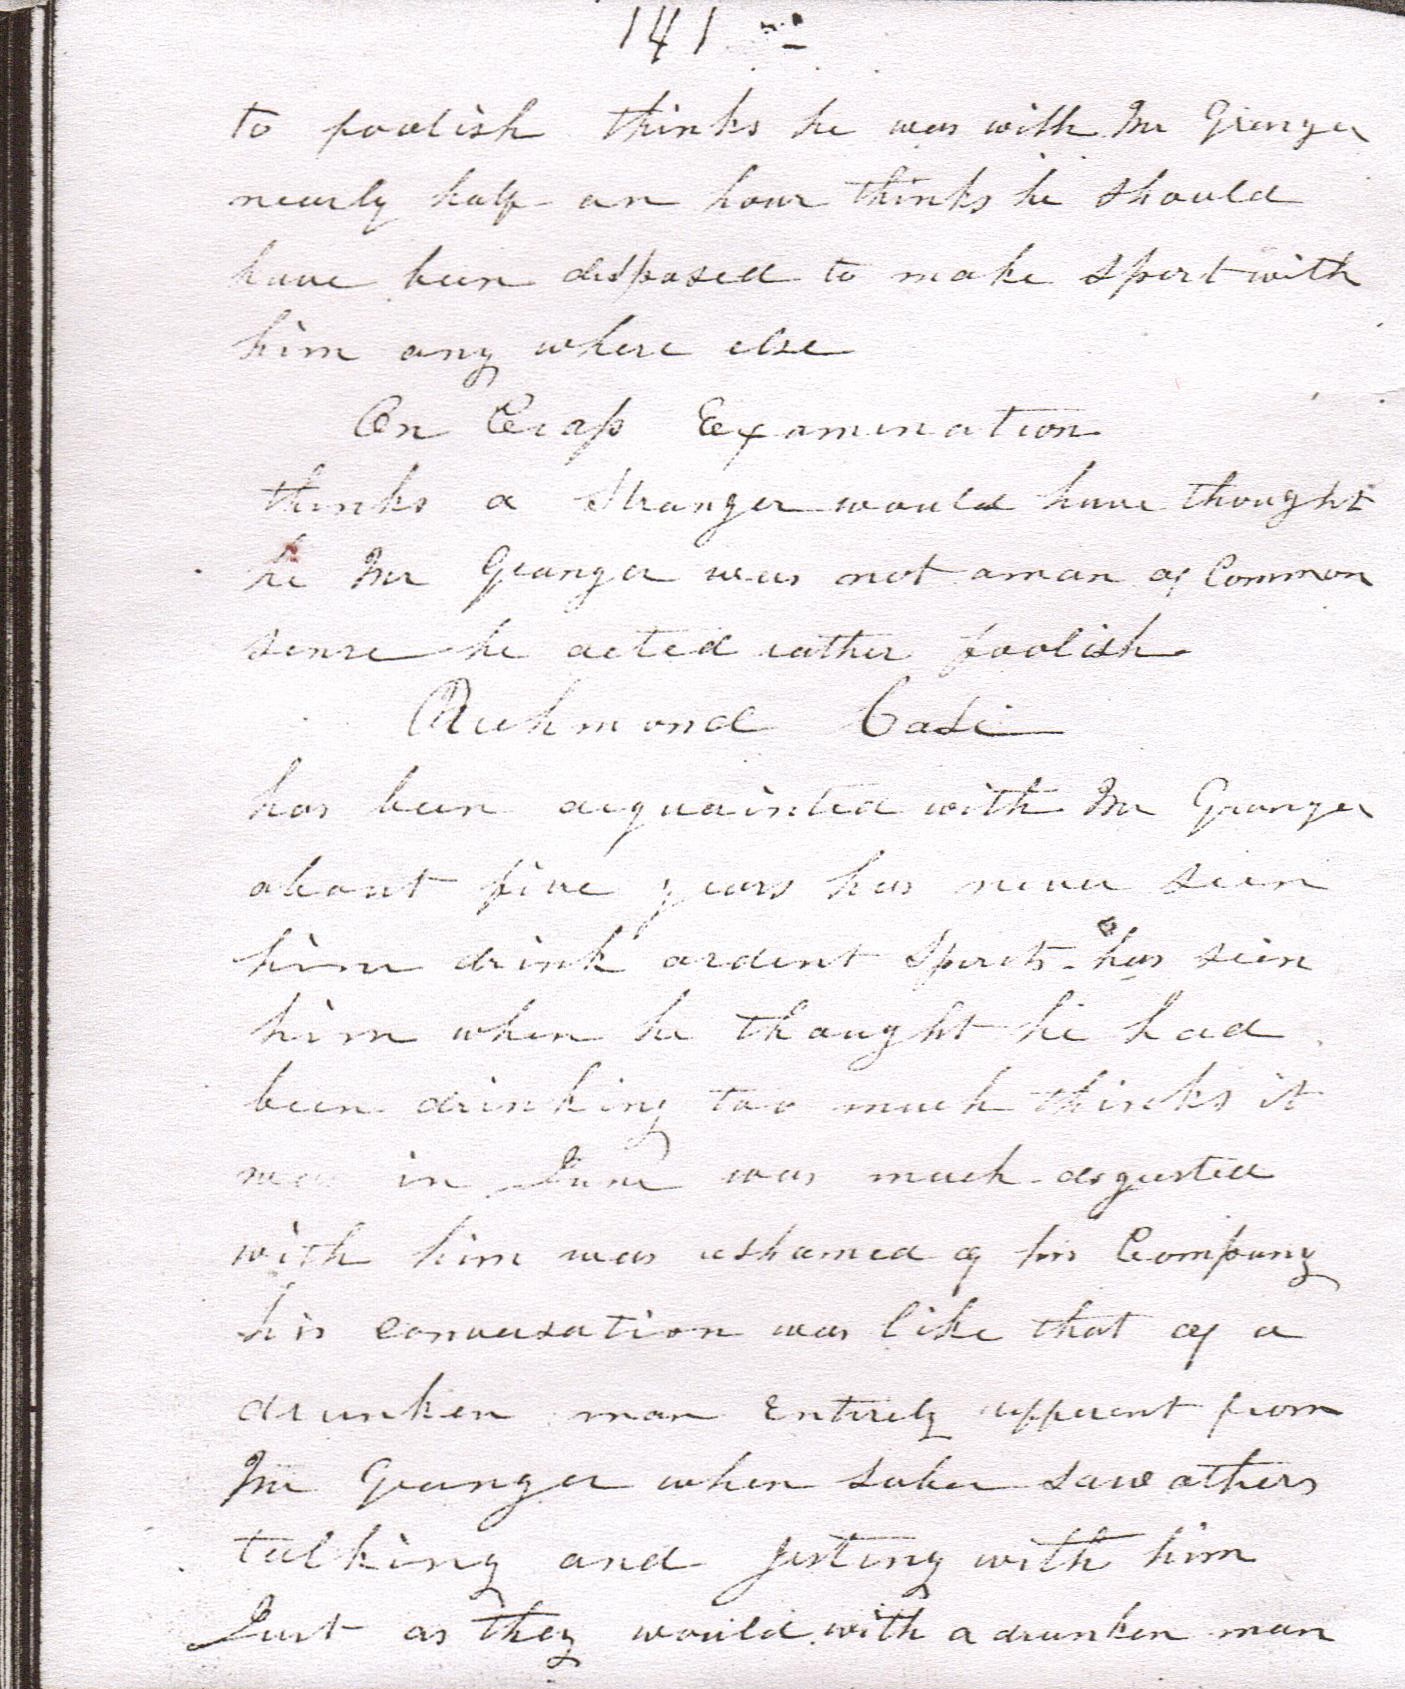 141
to foolish thinks he was with Mr Granger
nearly half an hour thinks he should
have been disposed to make sport with
him any where else
On Cross Examination
thinks a Stranger would have thought
he Mr Granger was not a man of Common
sense he acted rather foolish
Richmond Case
has been acquainted with Mr Granger
about five years has never seen
him drink ardent Spirits - has seen
him when he thought he had
been drinking too much thinks it
was in June was much disgusted
with him was ashamed of his Company
his conversation was like that of a
drunken man Entirely different from
Mr Granger when sober saw others
talking and Jesting with him
Just as they would with a drunken man